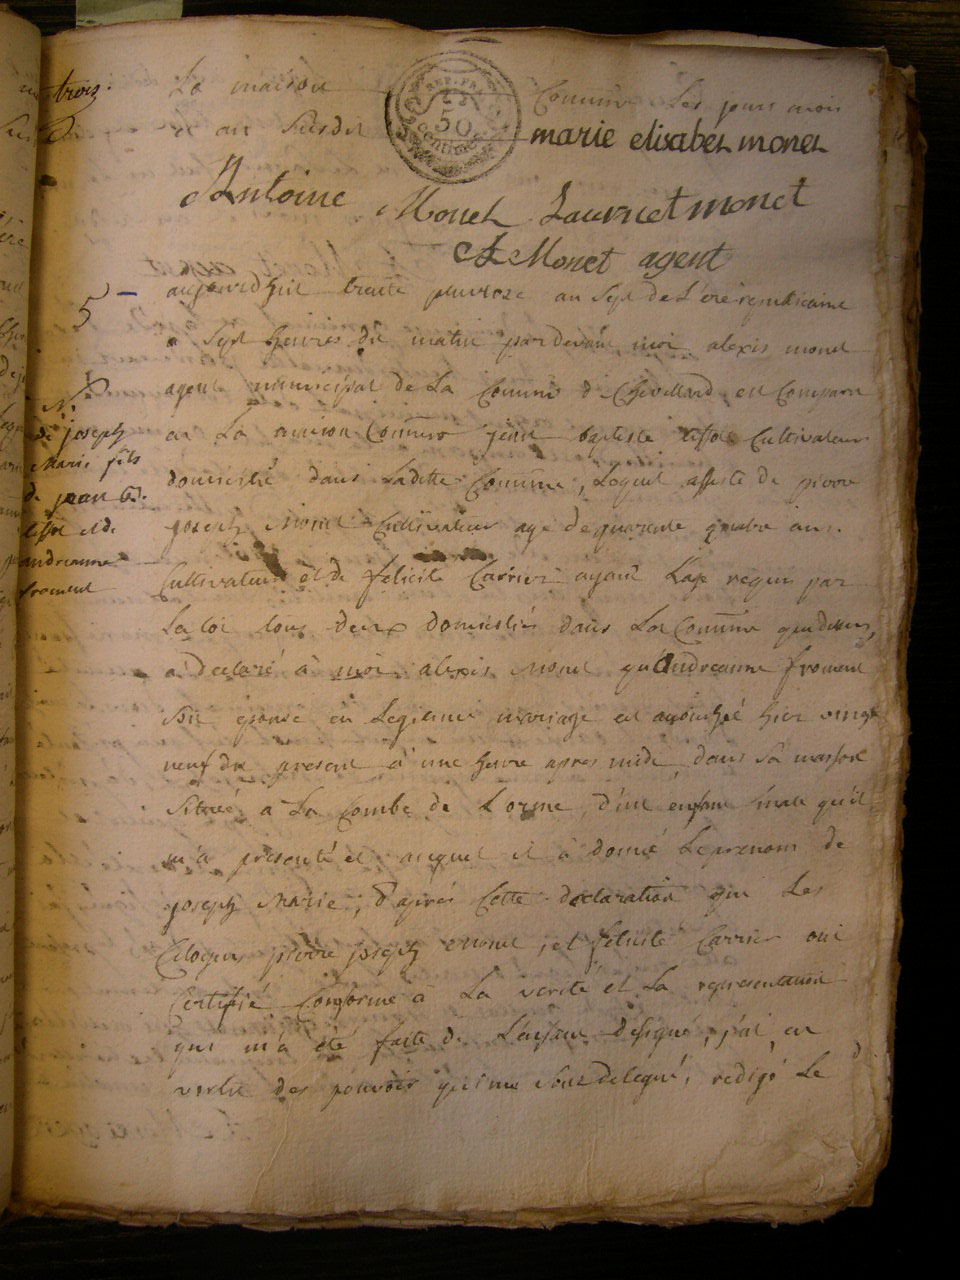 trois.
La maison Commune Les jours mois
et an Susdit
REP. FRA.
50
centimes
marie elisabet monet
Antoine Monet Lauricet monet
A Monet agent
5 -
aujourdhui trante pluvioze an Sept de L'ere republicaine
a Sept heures du matin par devant moi alexis monet
agent municipal de La Commune de Chevillard est Comparu
en La maison Commune jean baptiste lissot Cultivateur
domicilié dans Ladite Commune, Lequel assisté de pierre
joseph Monet Cultivateur age de quarante quatre ans.
Cultivateur et de felicité Carrier ayant L'age requis par
La loi tous deux domiciliés dans La Commune que dessus,
a declaré à moi alexis Monet qu'andreanne froment
son epouse en Legitime mariage est accouchée hier vingt
neuf du present à une heure apres midi dans sa maison
Située a La Combe de Lorme, d'un enfant male qu'il
m'a presenté et auquel il à donné Le prenom de
joseph Marie, d'après Cette declaration que Les
Citoyens pierre joseph monet, et felicité Carrier ont
Certifié Conforme à La verité et La representation
qui m'a été faite de L'enfant designé, j'ai, en
vertu des pouvoirs qui me sont delegué, redigé Le
N.
de joseph
Marie fils
de jean b.
lissot et de
andreanne
froment